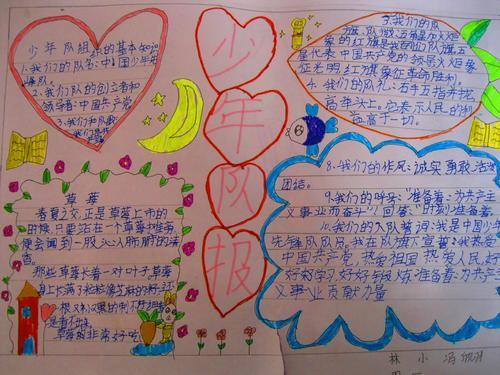 少年队组织的基本知识
1.我们的队名:中国少年先
锋队。
2.我们队的创立者和
领导者:中国共产党
3.我们
少
年
队
报
3.我们的队
旗、队徽:五角星加火炬
的红旗是我们的队旗,五
星代表中国共产党的领导,火炬象
征光明,红旗象征革命胜利,
4.我们的队礼:右手五指并拢,
高举头上。它表示人民的利
益高于一切。
草莓
春夏之交,正是草莓上市的
时候,只要站在一个草莓
便会闻到一股沁人肺腑的清
香。
那些草莓长着一对叶子,草莓
身上长满了
草莓非常好吃
8.我们的作风:诚实、勇敢、活泼、
团结。
9.我们的呼号:"准备着:为共产主
义事业而奋斗!"回答:"时刻准备着
10.我们的入队誓词:我是中国少年
先锋队队员。我在队旗下宣誓:我热爱
中国共产党,热爱祖国,热爱人民,好
好学习,好好锻炼,准备着:为共产
主义事业贡献力量
林小冯